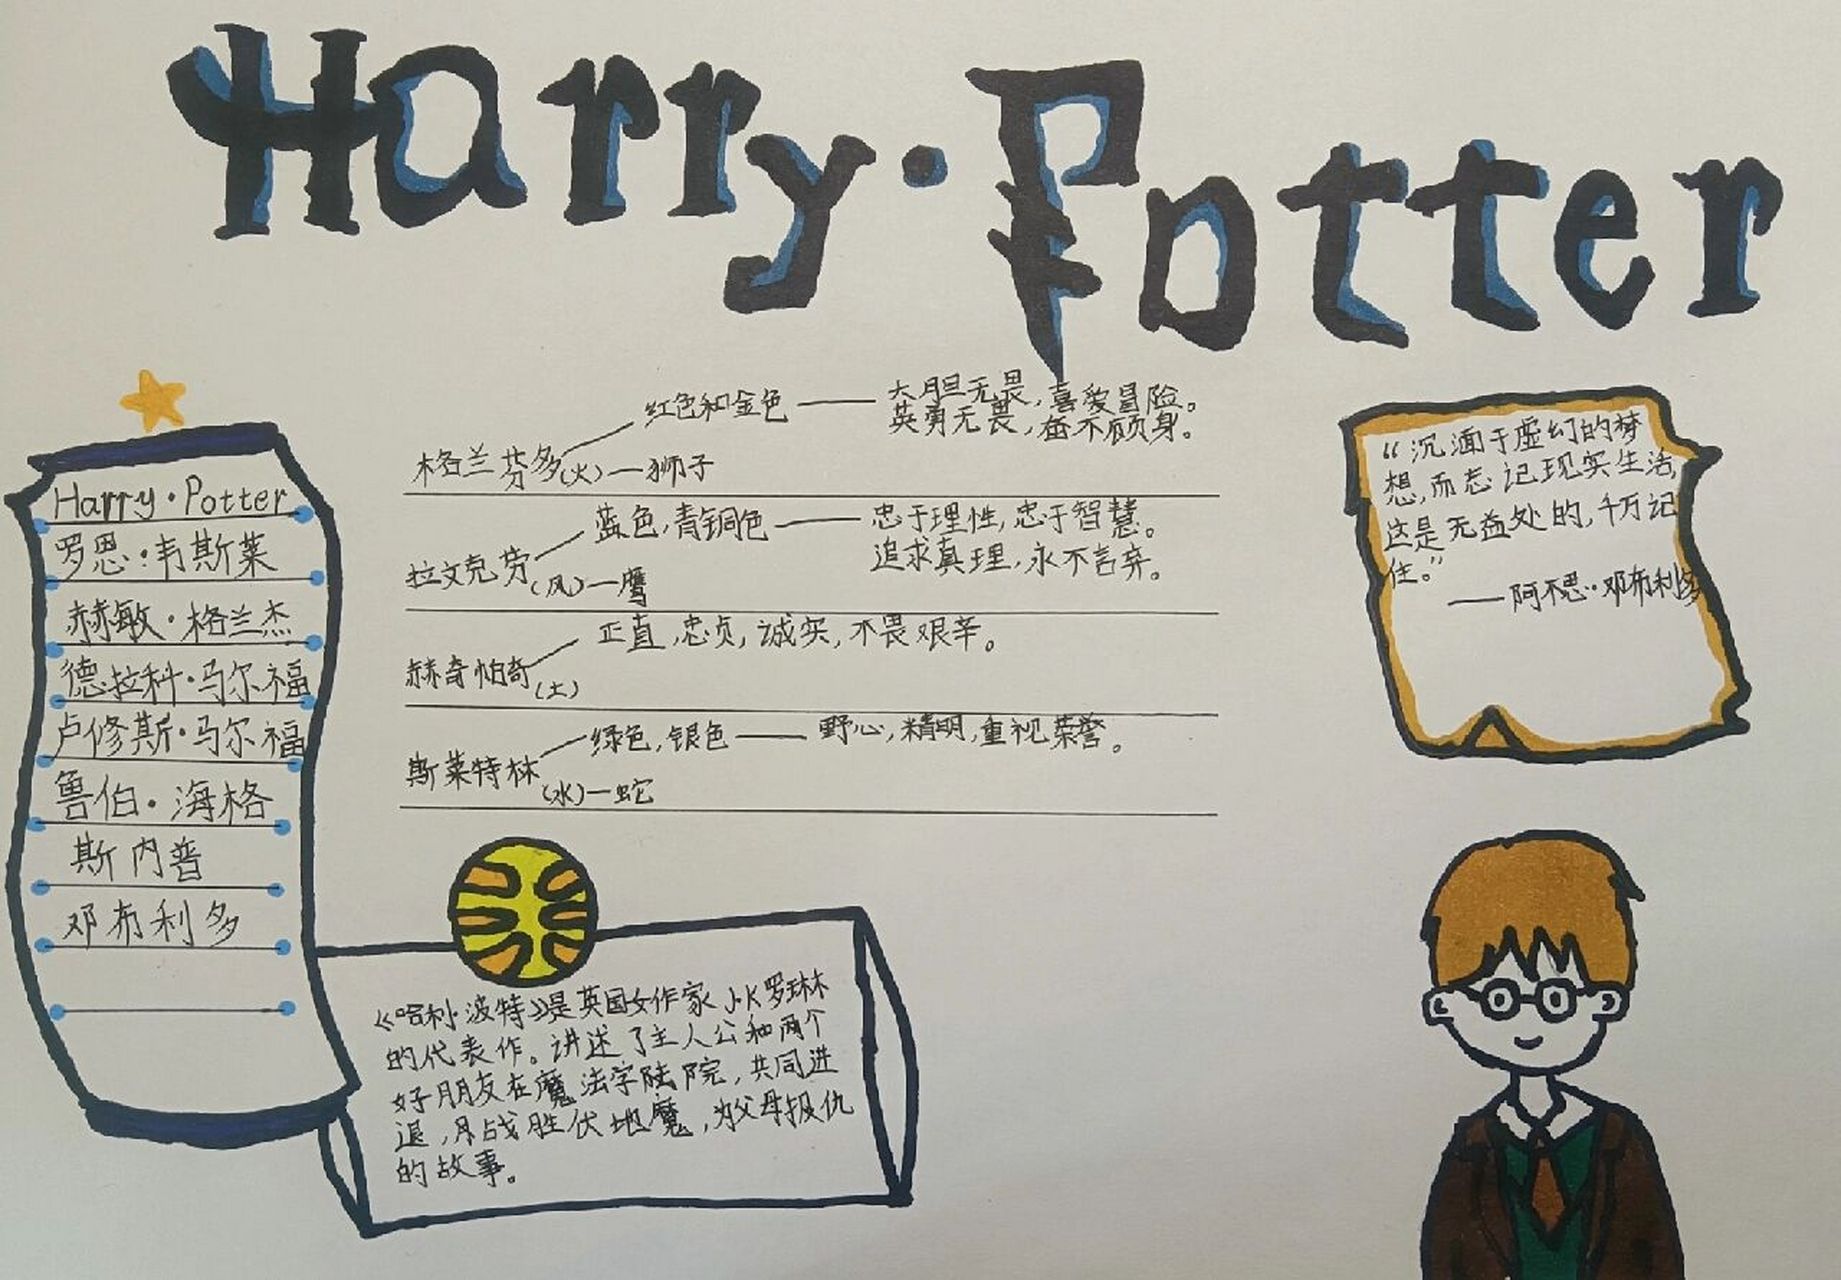 Harry·Potter
Harry·Potter
罗恩·韦斯莱
赫敏·格兰杰
德拉科·马尔福
卢修斯·马尔福
鲁伯·海格
斯内普
邓布利多
红色和金色——大胆无畏,喜爱冒险。
英勇无畏,奋不顾身。
格兰芬多(火)—狮子
蓝色,青铜色——忠于理性,忠于智慧。
追求真理,永不言弃。
拉文克劳(风)—鹰
正直,忠贞,诚实,不畏艰辛。
赫奇帕奇(土)
绿色,银色——野心,精明,重视荣誉。
斯莱特林(水)—蛇
“沉湎于虚幻的梦
想,而忘记现实生活,
这是无益处的,千万记
住。”
——阿不思·邓布利多
《哈利·波特》是英国女作家J·K罗琳
的代表作。讲述了主人公和两个
好朋友在魔法学院,共同进
退,战胜伏地魔,为父母报仇
的故事。